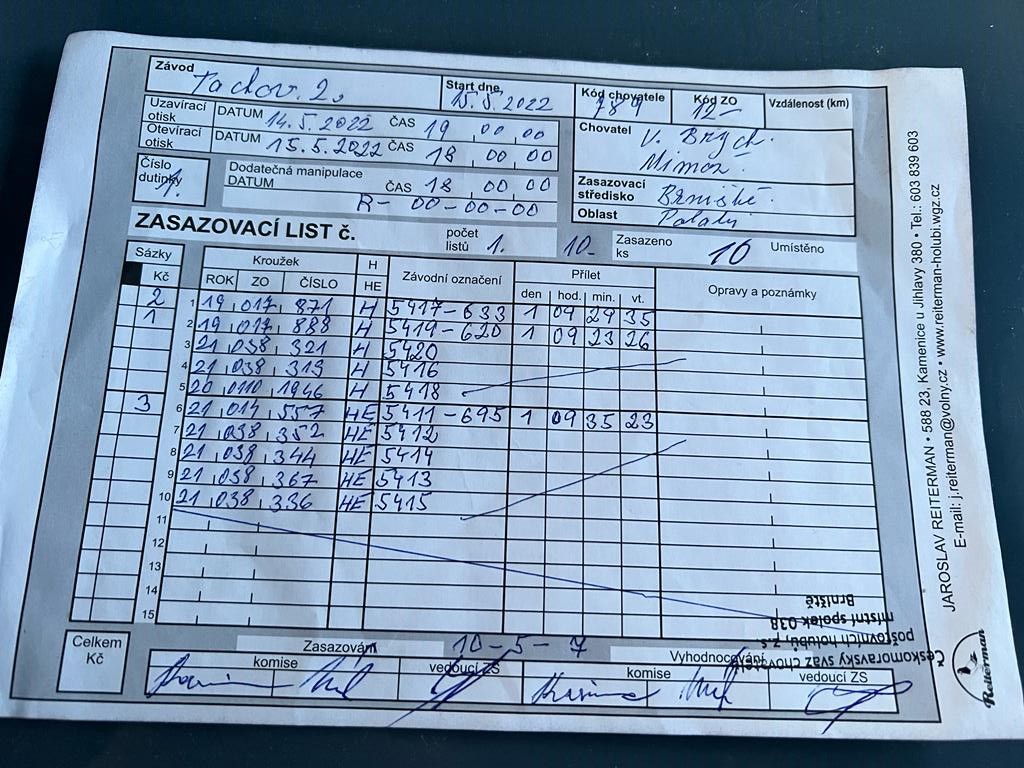 Závod Tachov 2. Start dne 15.5.2022 Kód chovatele 789 Kód ZO 12 Vzdálenost (km)
Uzavírací otisk DATUM 14.5.2022 ČAS 19 00 00
Otevírací otisk DATUM 15.5.2022 ČAS 18 00 00
Chovatel V. Brych.
Mimoň.
Číslo dutinky 1.
Dodatečná manipulace
DATUM ČAS 18 00 00
R- 00-00-00
Zasazovací středisko Brniště.
Oblast
ZASAZOVACÍ LIST č. počet listů 1. 10- Zasazeno ks 10 Umístěno
Sázky Kroužek H Závodní označení Přílet Opravy a poznámky
Kč ROK ZO ČÍSLO HE den hod. min. vt.
2 1 19 017 871 H 5417-633 1 09 29 35
1 2 19 017 888 H 5419-620 1 09 23 26
3 21 038 321 H 5420
4 21 038 313 H 5416
5 20 0110 1946 H 5418
3 6 21 014 557 HE 5411-695 1 09 35 23
7 21 038 352 HE 5412
8 21 038 344 HE 5414
9 21 038 367 HE 5413
10 21 038 336 HE 5415
11
12
13
14
15
Celkem Kč
Zasazování 10-5-7 Vyhodnocování
komise vedoucí ZS komise vedoucí ZS
Českomoravský svaz chovatelů
poštovních holubů, z.s.
místní spolek 038
Brniště
JAROSLAV REITERMAN • 588 23, Kamenice u Jihlavy 380 • Tel.: 603 839 603
E-mail: j.reiterman@volny.cz • www.reiterman-holubi.wgz.cz
Reiterman